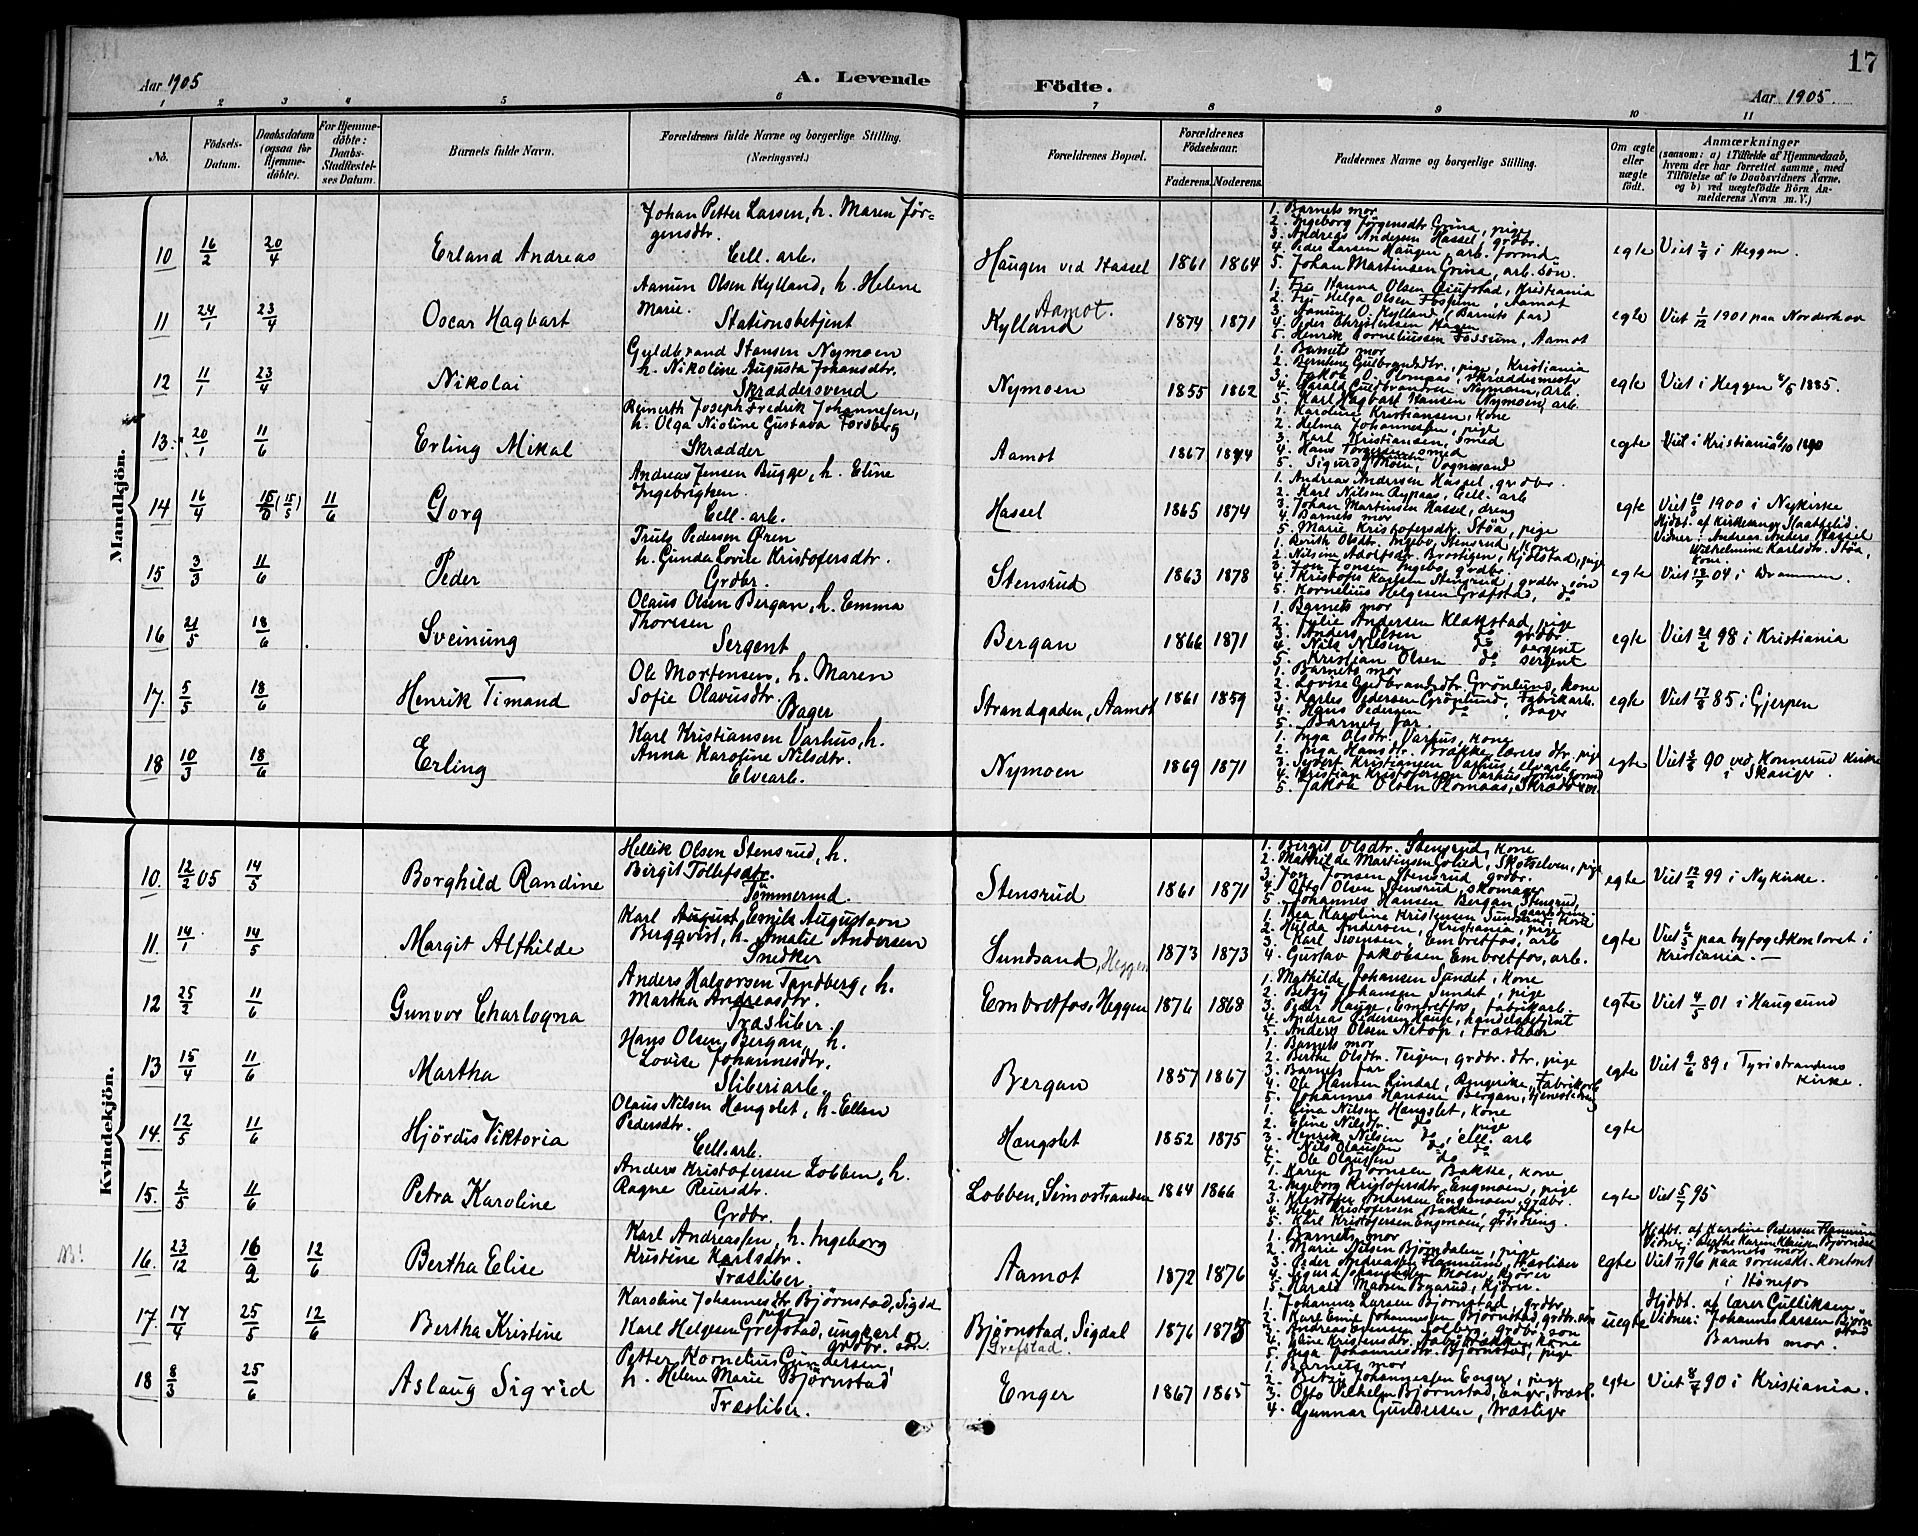 17
Aar 1905
A. Levende Födte.
Aar 1905
1 2 3 4 5 6 7 8 9 10 11
No.
Födsels-Datum.
Daabsdatum (ogsaa for Hjemmedöbte).
For Hjemmedöbte: Daabs-Stadfæstelses Datum.
Barnets fulde Navn.
Forældrenes fulde Navne og borgerlige Stilling. (Næringsvei.)
Forældrenes Bopæl.
Forældrenes Födselsaar.
Faderens. Moderens.
Faddernes Navne og borgerlige Stilling.
Om ægte eller uægte födt.
Anmærkninger
(saasom: a) i Tilfælde af Hjemmedaab, hvem der har forrettet samme, med Tilföielse af to Daabsvidners Navne, og b) ved uægtefödte Börn Anmelderens Navn m. V.)
Mandkjön.
10 16/2 20/4 Erland Andreas
Johan Petter Larsen, h. Maren Jör-
gensdtr.
Cell. arb.
Haugen ved Hassel 1861 1864
1. Barnets mor
2. Ingeborg Jørgensdtr Grina, pige
3. Andreas Andersen Hassel, grdbr.
4. Peder Larsen Haugen, arb. formd.
5. Johan Martinsen Grina, arb. søn.
egte
Viet 2/4 i Heggen.
11 24/1 23/4 Oscar Hagbart
Aanun Olsen Kylland, h. Helene
Marie.
Stationsbetjent
Kylland Aamot. 1874 1871
1. Fru Hanna Olsen, Kristiania
2. Frk Helga Olsen Fossum, Aamot
3. Aanun O. Kylland (Barnets far)
4. Peder Christensen Hagen
5. Henrik Korneliussen Fossum, Aamot
egte
Viet 1/12 1901 paa Norderhov
12 11/1 23/4 Nikolai
Guldbrand Hansen Nymoen
h. Nikoline Augusta Johansdtr.
Skræddersvend
Nymoen 1855 1862
1. Barnets mor
2. Berntine Gulbrandsdtr., pige, Kristiania
3. Jakob O. Plomaas, skræddermester
4. Harald Guldbrandsen Nymoen, arb.
5. Karl Hagbart Hansen Nymoen, arb.
egte
Viet i Heggen 1885.
13. 20/1 11/6 Erling Mikal
Reinerth Joseph Fredrik Johannesen,
h. Olga Nioline Gustava Forsberg
Skrædder
Aamot 1867 1874
1. Karoline Kristiansen, kone
2. Helma Johannessen, pige
3. Karl Kristiansen, smed
4. Hans smed
5. Sigurd Moen, Vognmand
egte
Viet i Kristiania 6/10 1890
14 16/4 (15/5) 11/6 Gorg
Andreas Jensen Bugge, h. Eline
Ingebrigtsen.
Cell. arb.
Hassel 1865 1874
1. Andreas Andersen Hassel, grdbr.
2. Karl Nilsen Rypaas, Cell. arb
3. Johan Martinsen Hassel, dreng
4. Barnets mor
5. Marie Kristofersdtr. Støa, pige
egte
Viet 10/3 1900 i Nykirke
Hjdbt. af kirkesanger Slaattelid.
Vidner: Andreas Anders. Hassel
Wilhelmine Karlsdtr. Støa,
kone.
15 3/3 11/6 Peder
Truls Pedersen Øren
h. Gunda Lovise Kristofersdtr.
Grdbr.
Stensrud 1863 1878
1. Berith Olsdtr. Ingebo, Stensrud
2. Nilsine Adolfsdtr. Brostigen, pige
3. Jon Jonsen Ingebo, grdbr.
4. Kristofer Karlsen Stensrud, grdbr. søn
5. Kornelius Helgesen Grafstad, do
egte
Viet 18/7 04 i Drammen.
16 21/5 18/6 Sveinung
Olaus Olsen Bergan, h. Emma
Thoresen
Sergent
Bergan 1866 1871
1. Barnets mor
2. Julie Andersen Klækstad, pige
3. Anders Olsen do grdbr.
4. Nils Nilsen do sergent
5. Kristian Olsen do sergent
egte
Viet 21/2 98 i Kristiania
17. 5/5 18/6 Henrik Timand
Ole Mortensen, h. Maren
Sofie Olavusdtr.
Bager
Strandgaden, Aamot 1861 1859
1. Barnets mor
2. Lovise Guldbrandsdtr. Grönlund, kone
3. Karles Pedersen Grönlund, Fabrikarb.
4. Hans Pedersen do, Bager
5. Barnets far.
egte
Viet 17/8 85 i Gjerpen
18 10/3 18/6 Erling
Karl Kristiansen Varhus, h.
Anna Karoline Nilsdtr.
Elvearb.
Nymoen 1869 1871
1. Inga Olsdtr. Varhus, kone
2. Inga Hansdtr. Brække, lærers dtr, pige
3. Severt Kristiansen Varhus, elvearb.
4. Kristian Kristofersen Varhus, formd
5. Jakob Olsen Plomaas, Skrædderm.
egte
Viet 90 ved Konnerud kirke
i Skouger.
Kvindekjön.
10. 12/2 05 14/5 Borghild Randine
Hellik Olsen Stensrud, h.
Birgit Tollefsdtr.
Tömmermd.
Stensrud 1861 1871
1. Birgit Olsdtr. Stensrud, kone
2. Mathilde Martinsen Sollid, Skotselven, pige
3. Jon Jonsen Stensrud grdbr.
4. Otto Olsen Stensrud, skomager
5. Johannes Hansen Bergan, Stensrud,
egte
Viet 12/2 99 i Nykirke.
11. 14/1 14/5 Margit Alfhilde
Karl August Emils Augustsøn
Bergqvist, h. Amalie Andersen
Snedker
Sundsand, Heggen 1873 1873
1. Thea Karoline Kristensen Sundsand, kone
2. Hilda Andersen, Kristiania, pige
3. Karl Svensen, Embretfos, arb
4. Gustav Jakobsen Embretfos, arb.
egte
Viet 6/5 paa byfogedkontoret i
Kristiania. —
12 25/2 11/6 Gunvor Charlogna
Anders Halvorsen Tandberg, h.
Martha Andreasdtr.
Træsliber
Embretfos, Heggen 1876 1868
1. Mathilde Johansen Sundet, kone
2. Betzy Johansen Sundet, pige
3. Peder Hauge, Embretfos, fabrikarb.
4. Andreas Pedersen Hauge, handelsbetjent
5. Anders Olsen Netop, træsliber
egte
Viet 4/5 01 i Haugsund
13 15/4 11/6 Martha
Hans Olsen Bergan, h.
Lovise Johannesdtr.
Sliberiarb.
Bergan 1857 1867
1. Barnets mor
2. Berthe Olsdtr. Teigen, grdbr. dtr, pige
3. Barnets far
4. Ole Hansen Lindal, Ringerike, Fabrikarb
5. Johannes Hansen Bergan, tjenestedreng
egte
Viet 9/6 89 i Tyristrandens
Kirke.
14. 12/5 11/6 Hjördis Viktoria
Olaus Nilsen Hangslet, h. Ellen
Pedersdtr.
Cell. arb.
Hangslet 1852 1875
1. Lina Nilsen Hangslet, kone
2. Eline Nilsdtr. do, pige
3. Henrik Nilsen do, cell. arb
4. Nils Olaussen do do
5. Ole Olaussen do
egte
15. 2/5 11/6 Petra Karoline
Anders Kristofersen Lobben, h.
Ragne Reiersdtr.
Grdbr.
Lobben, Simostranden 1864 1866
1. Karen Bjørnsen Bakke, kone
2. Ingeborg Kristofersdtr. Engmoen, pige
3. Kristofer Andersen Engmoen, grdbr
4. Helge Kristofersen Bakke, grdbr.
5. Karl Kristofersen Engmoen, grdsdreng.
egte
Viet 5/7 95
16. 23/12 16/2 12/6 Bertha Elise
Karl Andreassen, h. Ingeborg
Kristine Karlsdtr.
Træsliber
Aamot 1872 1876
1. Barnets mor
2. Marie Nilsen Bjørndalen, pige
3. Peder Andreassen Hannum, træsliber
4. Sigurd Moen, kjører
5. Harald Madsen Bogarud, kjører.
egte
Hjdbt. af Karoline Pedersen Hannum
Vidner: Berthe Karen Bjørndalen
Barnets mor
Viet 96 paa sorenskr. kontort
i Hønefos
17. 17/4 25/5 12/6 Bertha Kristine
Karoline Johannesdtr Bjørnstad, Sigdal
pige
Karl Helgesen Grefstad, ungkarl og
grdbr. søn
Bjørnstad, Sigdal
Grefstad 1876 1875
1. Johannes Larsen Bjørnstad, grdbr.
2. Karl Emil Johannesen Bjørnstad, grdbr. søn
3. Andreas Jensen Solberg, grdbr. søn
4. Eline Kristensdtr. kone
5. Inga Johannesdtr. Bjørnstad, pige
uegte
Hjdbt. af lærer Gulliksen
Vidner: Johannes Larsen Bjørn
stad
Barnets mor.
18 8/3 25/6 Aslaug Sigrid
Petter Kornelius Gundersen,
h. Helene Marie Bjørnstad
Træsliber.
Enger 1867 1865
1. Barnets mor
2. Betzy Johannessen Enger, pige
3. Otto Vilhelm Bjørnstad, Enger, træsl.
4. Gunnar Gundersen, træsliger
egte
Viet 8/4 90 i Kristiania.